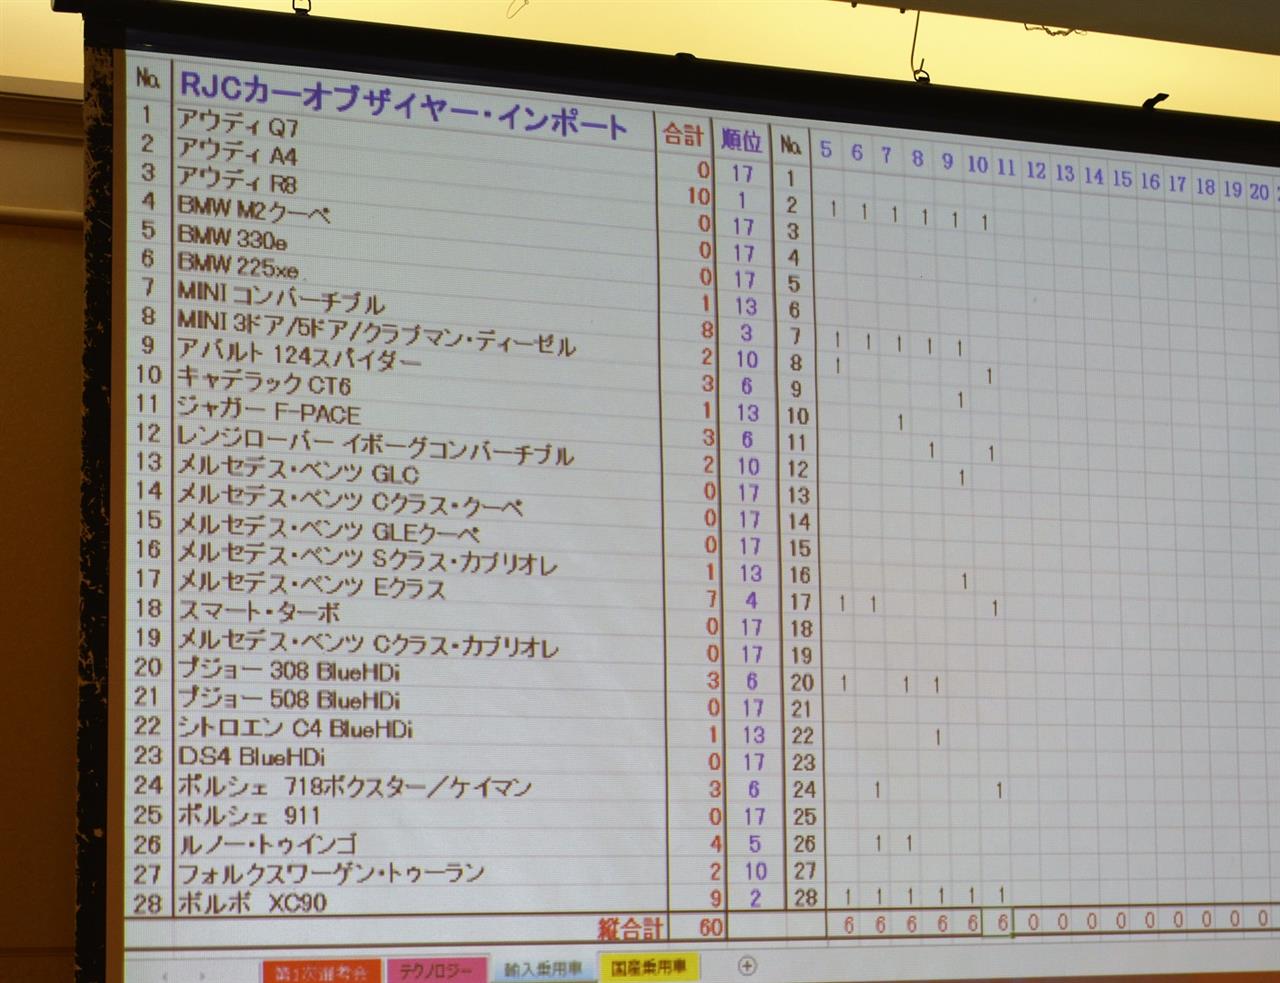 No. RJCカーオブザイヤー・インポート 合計 順位 No. 5 6 7 8 9 10 11 12 13 14 15 16 17 18 19 20
1 アウディ Q7 0 17 1
2 アウディ A4 10 1 2 1 1 1 1 1 1
3 アウディ R8 0 17 3
4 BMW M2クーペ 0 17 4
5 BMW 330e 0 17 5
6 BMW 225xe 1 13 6
7 MINI コンバーチブル 8 3 7 1 1 1 1 1
8 MINI 3ドア/5ドア/クラブマン・ディーゼル 2 10 8 1 1
9 アバルト 124スパイダー 3 6 9 1
10 キャデラック CT6 1 13 10 1
11 ジャガー F-PACE 3 6 11 1 1
12 レンジローバー イボーグコンバーチブル 2 10 12 1
13 メルセデス・ベンツ GLC 0 17 13
14 メルセデス・ベンツ Cクラス・クーペ 0 17 14
15 メルセデス・ベンツ GLEクーペ 0 17 15
16 メルセデス・ベンツ Sクラス・カブリオレ 1 13 16 1
17 メルセデス・ベンツ Eクラス 7 4 17 1 1 1
18 スマート・ターボ 0 17 18
19 メルセデス・ベンツ Cクラス・カブリオレ 0 17 19
20 プジョー 308 BlueHDi 3 6 20 1 1 1
21 プジョー 508 BlueHDi 0 17 21
22 シトロエン C4 BlueHDi 1 13 22 1
23 DS4 BlueHDi 0 17 23
24 ポルシェ 718ボクスター/ケイマン 3 6 24 1 1
25 ポルシェ 911 0 17 25
26 ルノー・トゥインゴ 4 5 26 1 1
27 フォルクスワーゲン・トゥーラン 2 10 27
28 ボルボ XC90 9 2 28 1 1 1 1 1 1
縦合計 60 6 6 6 6 6 6 0 0 0 0 0 0 0 0 0
第1次選考会 テクノロジー 輸入乗用車 国産乗用車